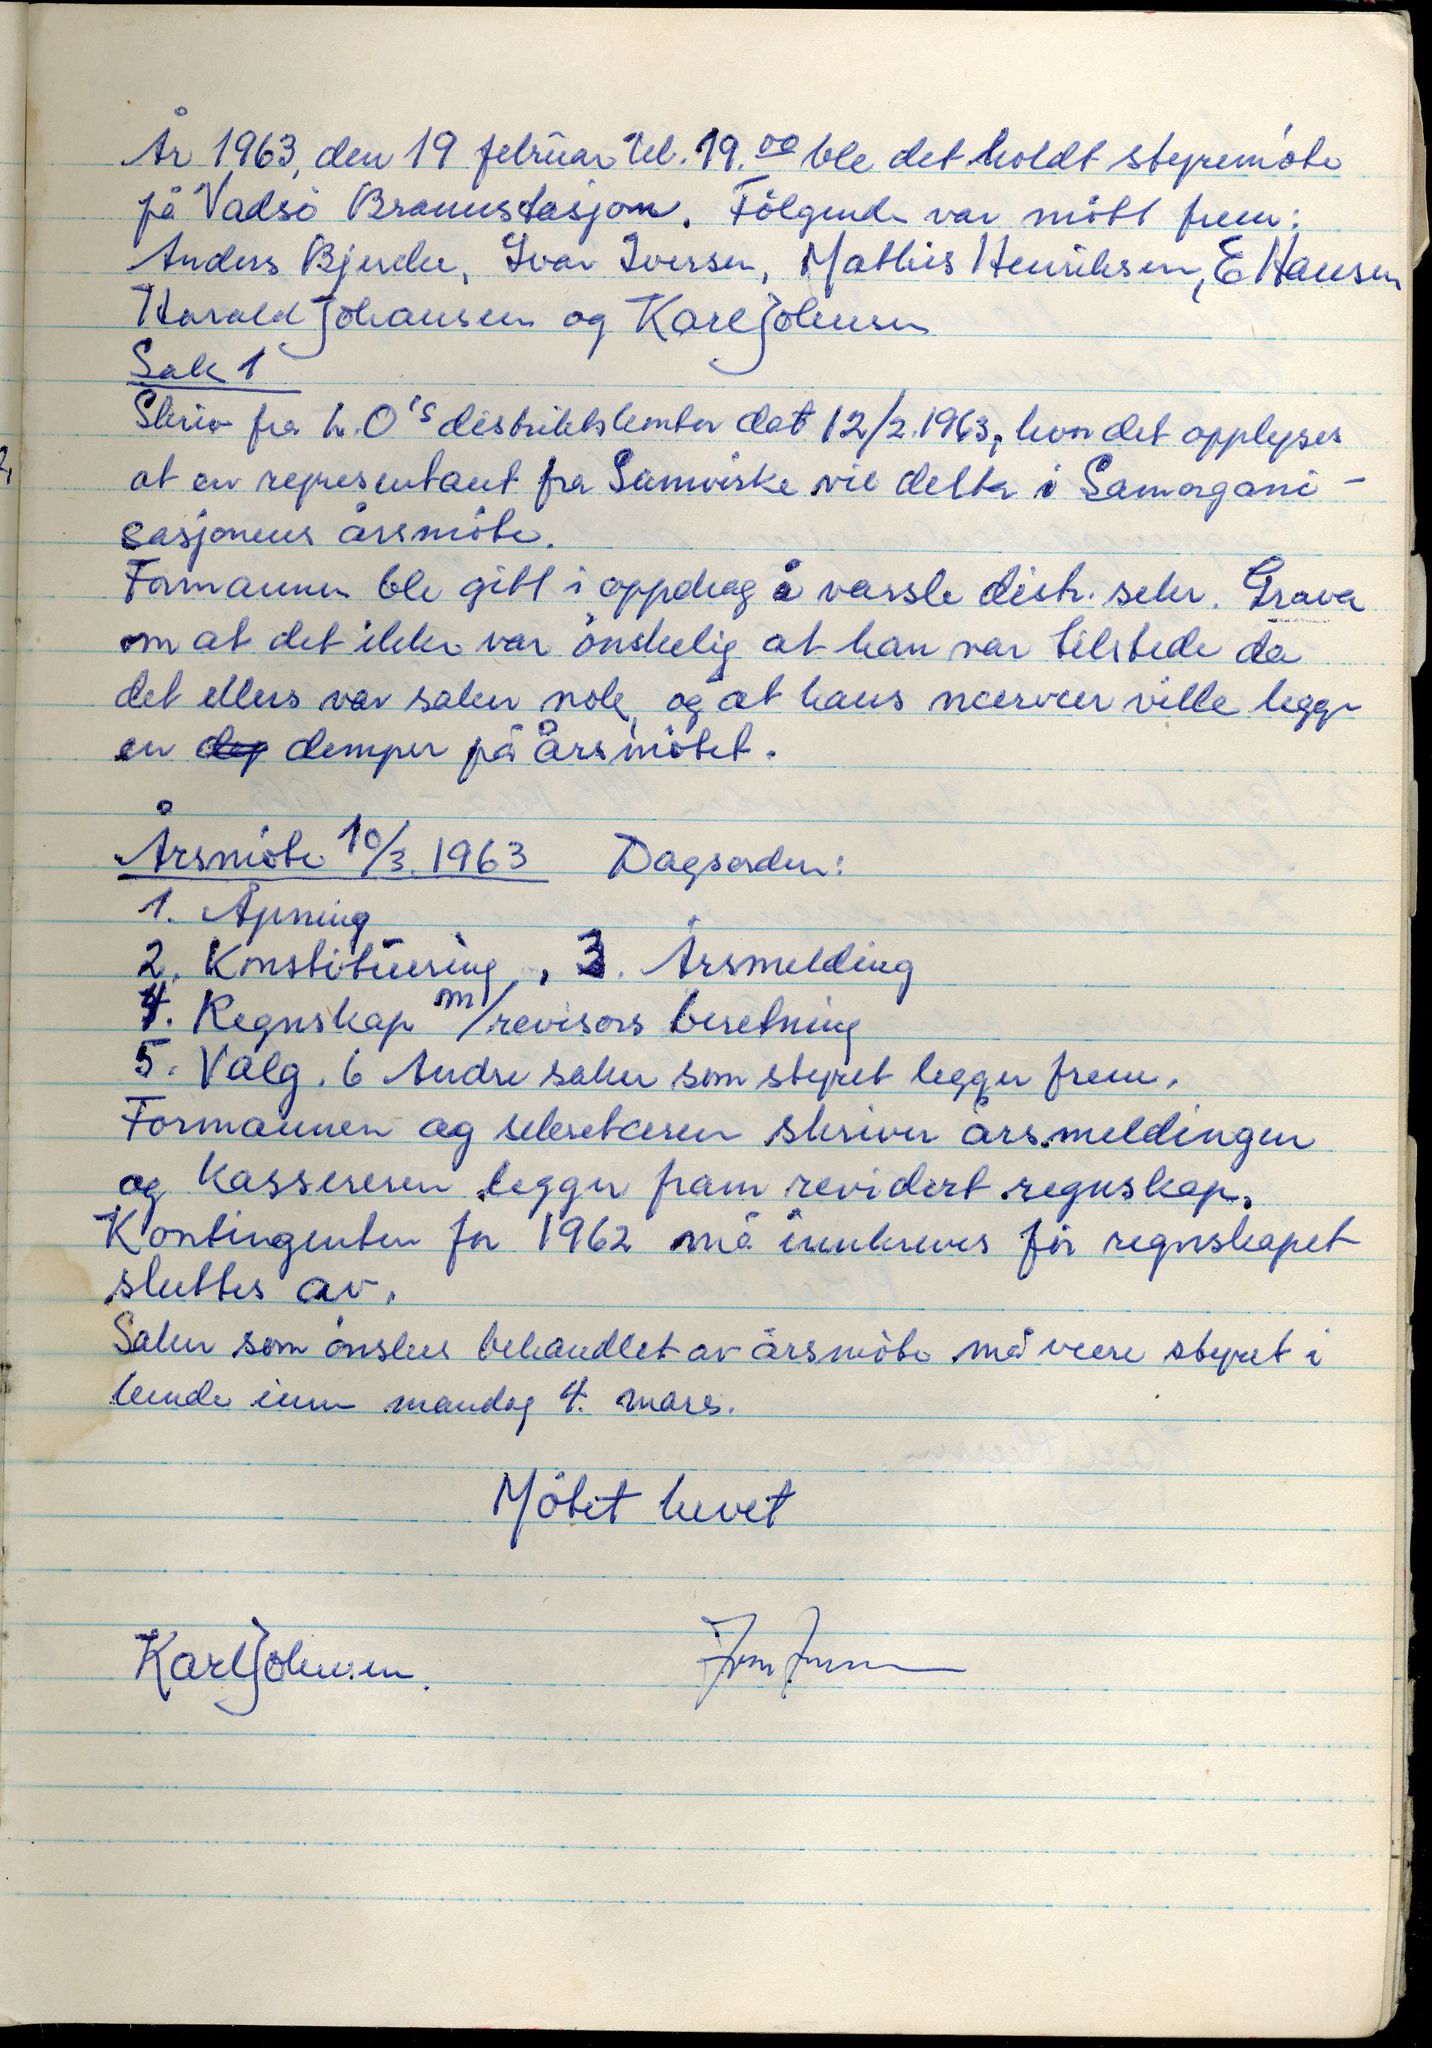 År 1963, den 19 februar kl. 19.00 ble det holdt styremöte
på Vadsö Brannstasjon. Fölgende var mött frem:
Anders Bjerke, Ivar Iversen, Mathis Henriksen, E Hansen
Harald Johansen og Karl Johnsen
Sak 1
Skriv fra L.O's distriktskontor dat 12/2.1963, hvor det opplyses
at en representant fra Samvirke vil delta i Samorgani-
sasjonens årsmöte.
Formannen ble gitt i oppdrag å varsle distr. sekr. Grava
om at det ikke var önskelig at han var tilstede da
det ellers var saker nok, og at hans nærvær ville legge
en dep demper på årsmötet.
Årsmöte 10/3.1963 Dagsorden:
1. Åpning
2. Konstituering, 3. Årsmelding
4. Regnskap m/revisors beretning
5. Valg. 6 Andre saker som styret legger frem.
Formannen og sekretæren skriver årsmeldingen
og Kassereren legger fram revidert regnskap.
Kontingenten for 1962 må innkreves för regnskapet
sluttes av.
Saker som önskes behandlet av årsmöte må være styret i
hende innen mandag 4. mars.
Mötet hevet
Karl Johnsen.